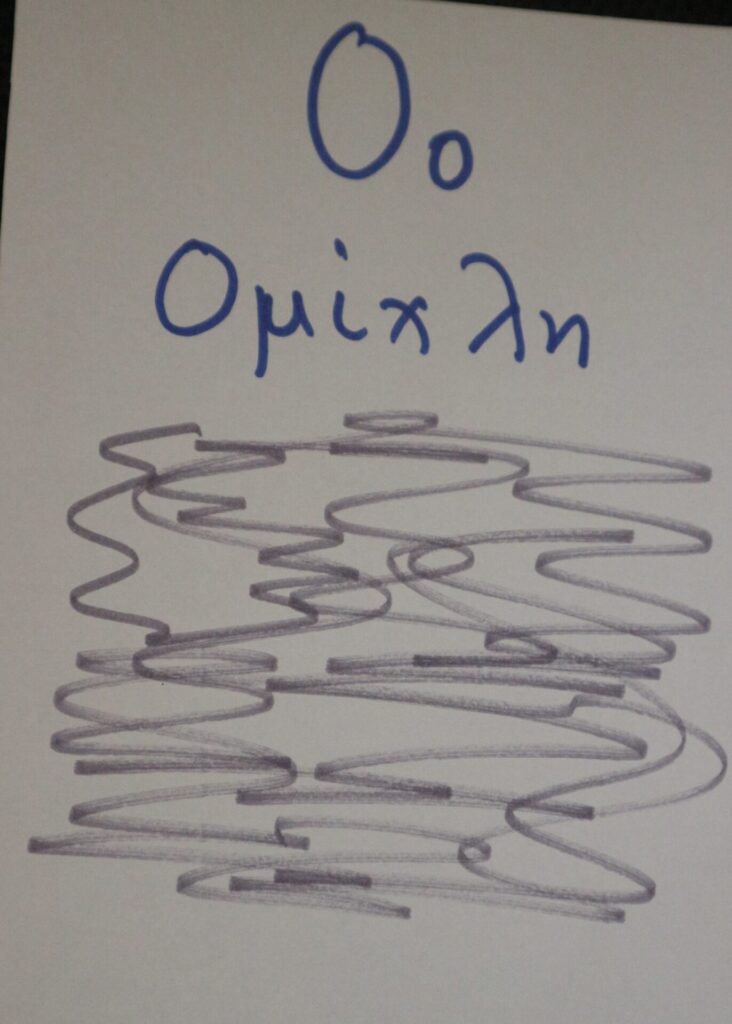 Οο
Ομίχλη